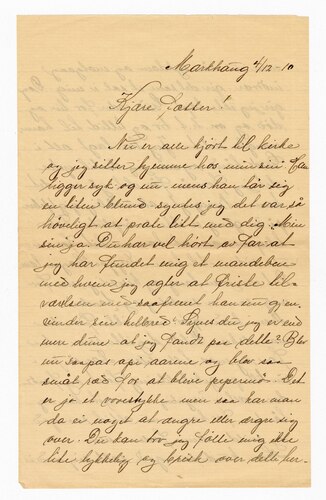 Markhaug 4/12-10
Kjære Søster!
Nu er alle kjørt til kirke
og jeg sitter hjemme hos min sin
ligger syk og nu mens han tar sig
en liten blund syntes jeg det var så
høveligt at prate litt med dig. Men
sin ja. Du har vel hørt av far at
jeg har fundet mig et mandeben
med hvem jeg agter at friste til-
værelsen med saafremt han nu gjen-
vinder sin helbred. Synes du jeg er end
mere dum at jeg fandt paa dette? Blev
nu saapas opi aarene og blev saa
småt ræd for at blive pepermø. Det
er jo et vovestykke men saa har man
da ei noget at angre eller ærgre sig
over. Du kan tro jeg følte mig ikke
lite lykkelig og kjæk over dette her-